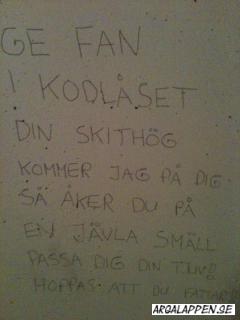 GE FAN
I KODLÅSET
DIN SKITHÖG
KOMMER JAG PÅ DIG
SÅ ÅKER DU PÅ
EN JÄVLA SMÄLL
PASSA DIG DIN TJUV!!
HOPPAS ATT DU FATTAR!
ARGALAPPEN.SE